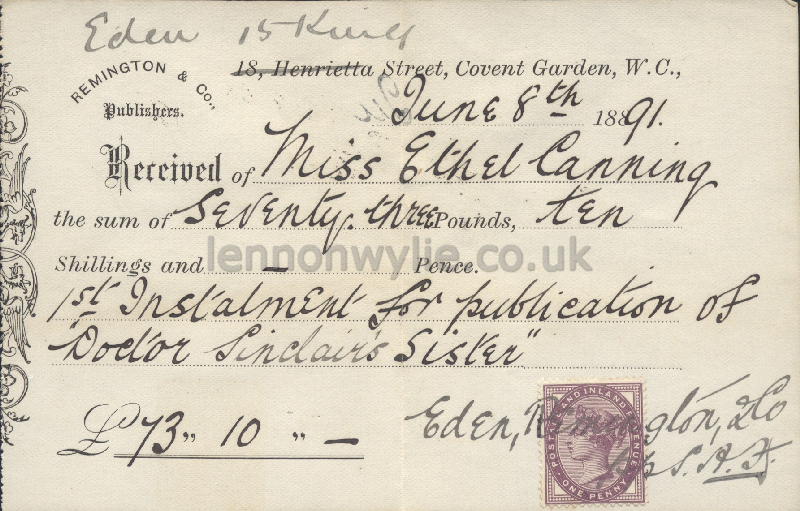 Eden 15 King
18, Henrietta Street, Covent Garden, W.C.,
REMINGTON & Co.,
Publishers.
June 8th 1891.
Received of Miss Ethel Canning
the sum of Seventy. three Pounds, ten
Shillings and — Pence.
lennonwylie.co.uk
1st Instalment for publication of
"Doctor Sinclair's Sister"
£73 " 10 " —
Eden, Remington, & Co
POSTAGE AND INLAND REVENUE
ONE PENNY